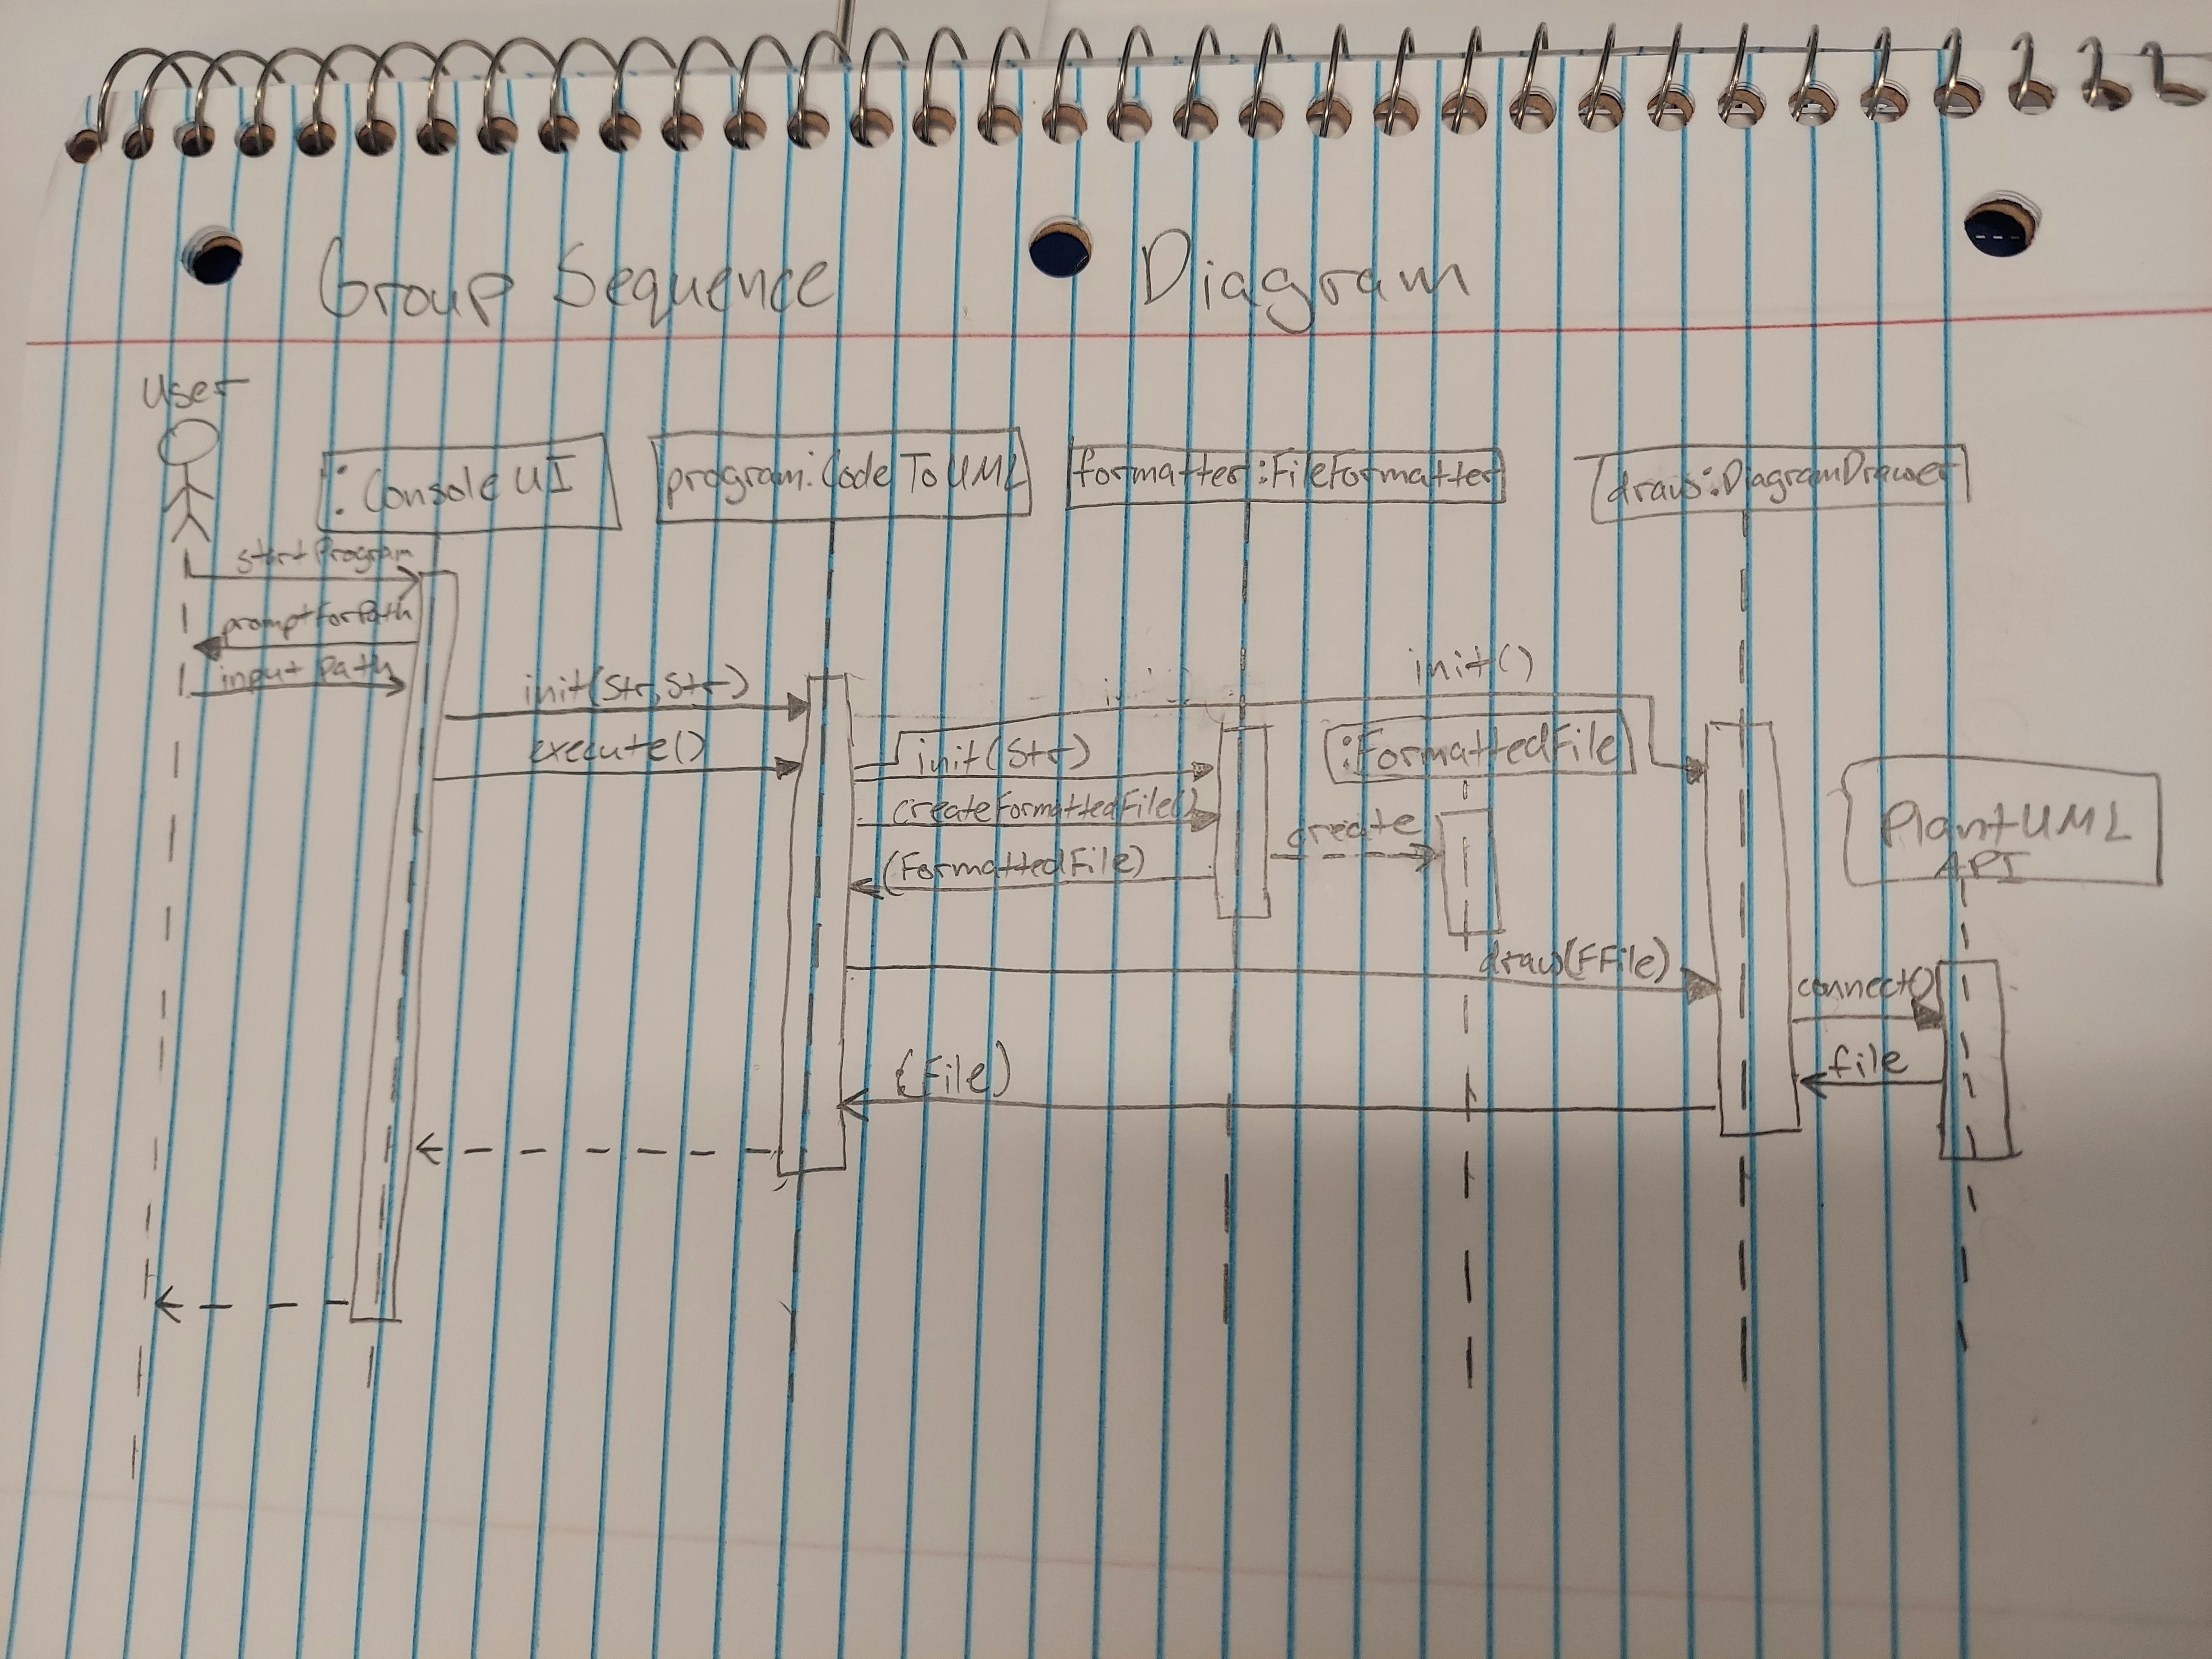 Group Sequence Diagram
User
:ConsoleUI
program:CodeToUML
formatter:FileFormatter
draws:DiagramDrawer
start Program
promptForPath
input path
init(Str, Str)
execute()
init()
init(Str)
createFormattedFile()
(FormattedFile)
:FormattedFile
create
PlantUML
API
draw(FFile)
connect()
file
(File)